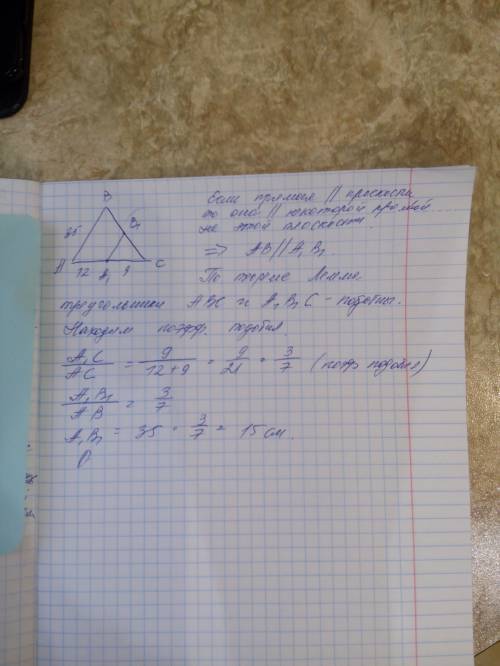 В
В₁
35
А
12
А₁
9
С
Если прямая || плоскости
то она || некоторой прямой
на этой плоскости.
=> АВ||А₁В₁
По теории Лемме
треугольники АВС и А₁В₁С - подобны.
Находим коэфф. подобия
А₁С/АС = 9/12+9 = 9/21 = 3/7 (коэф подобия)
А₁В₁/АВ = 3/7
А₁В₁ = 35 · 3/7 = 15 см.